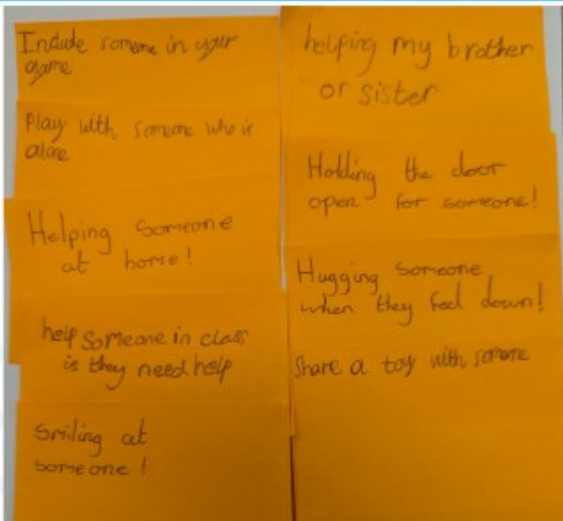 Include someone in your
game
Play with someone who is
alone
Helping someone
at home!
help someone in class
is they need help
Smiling at
someone!
helping my brother
or sister
Holding the door
open for someone!
Hugging someone
when they feel down!
Share a toy with someone